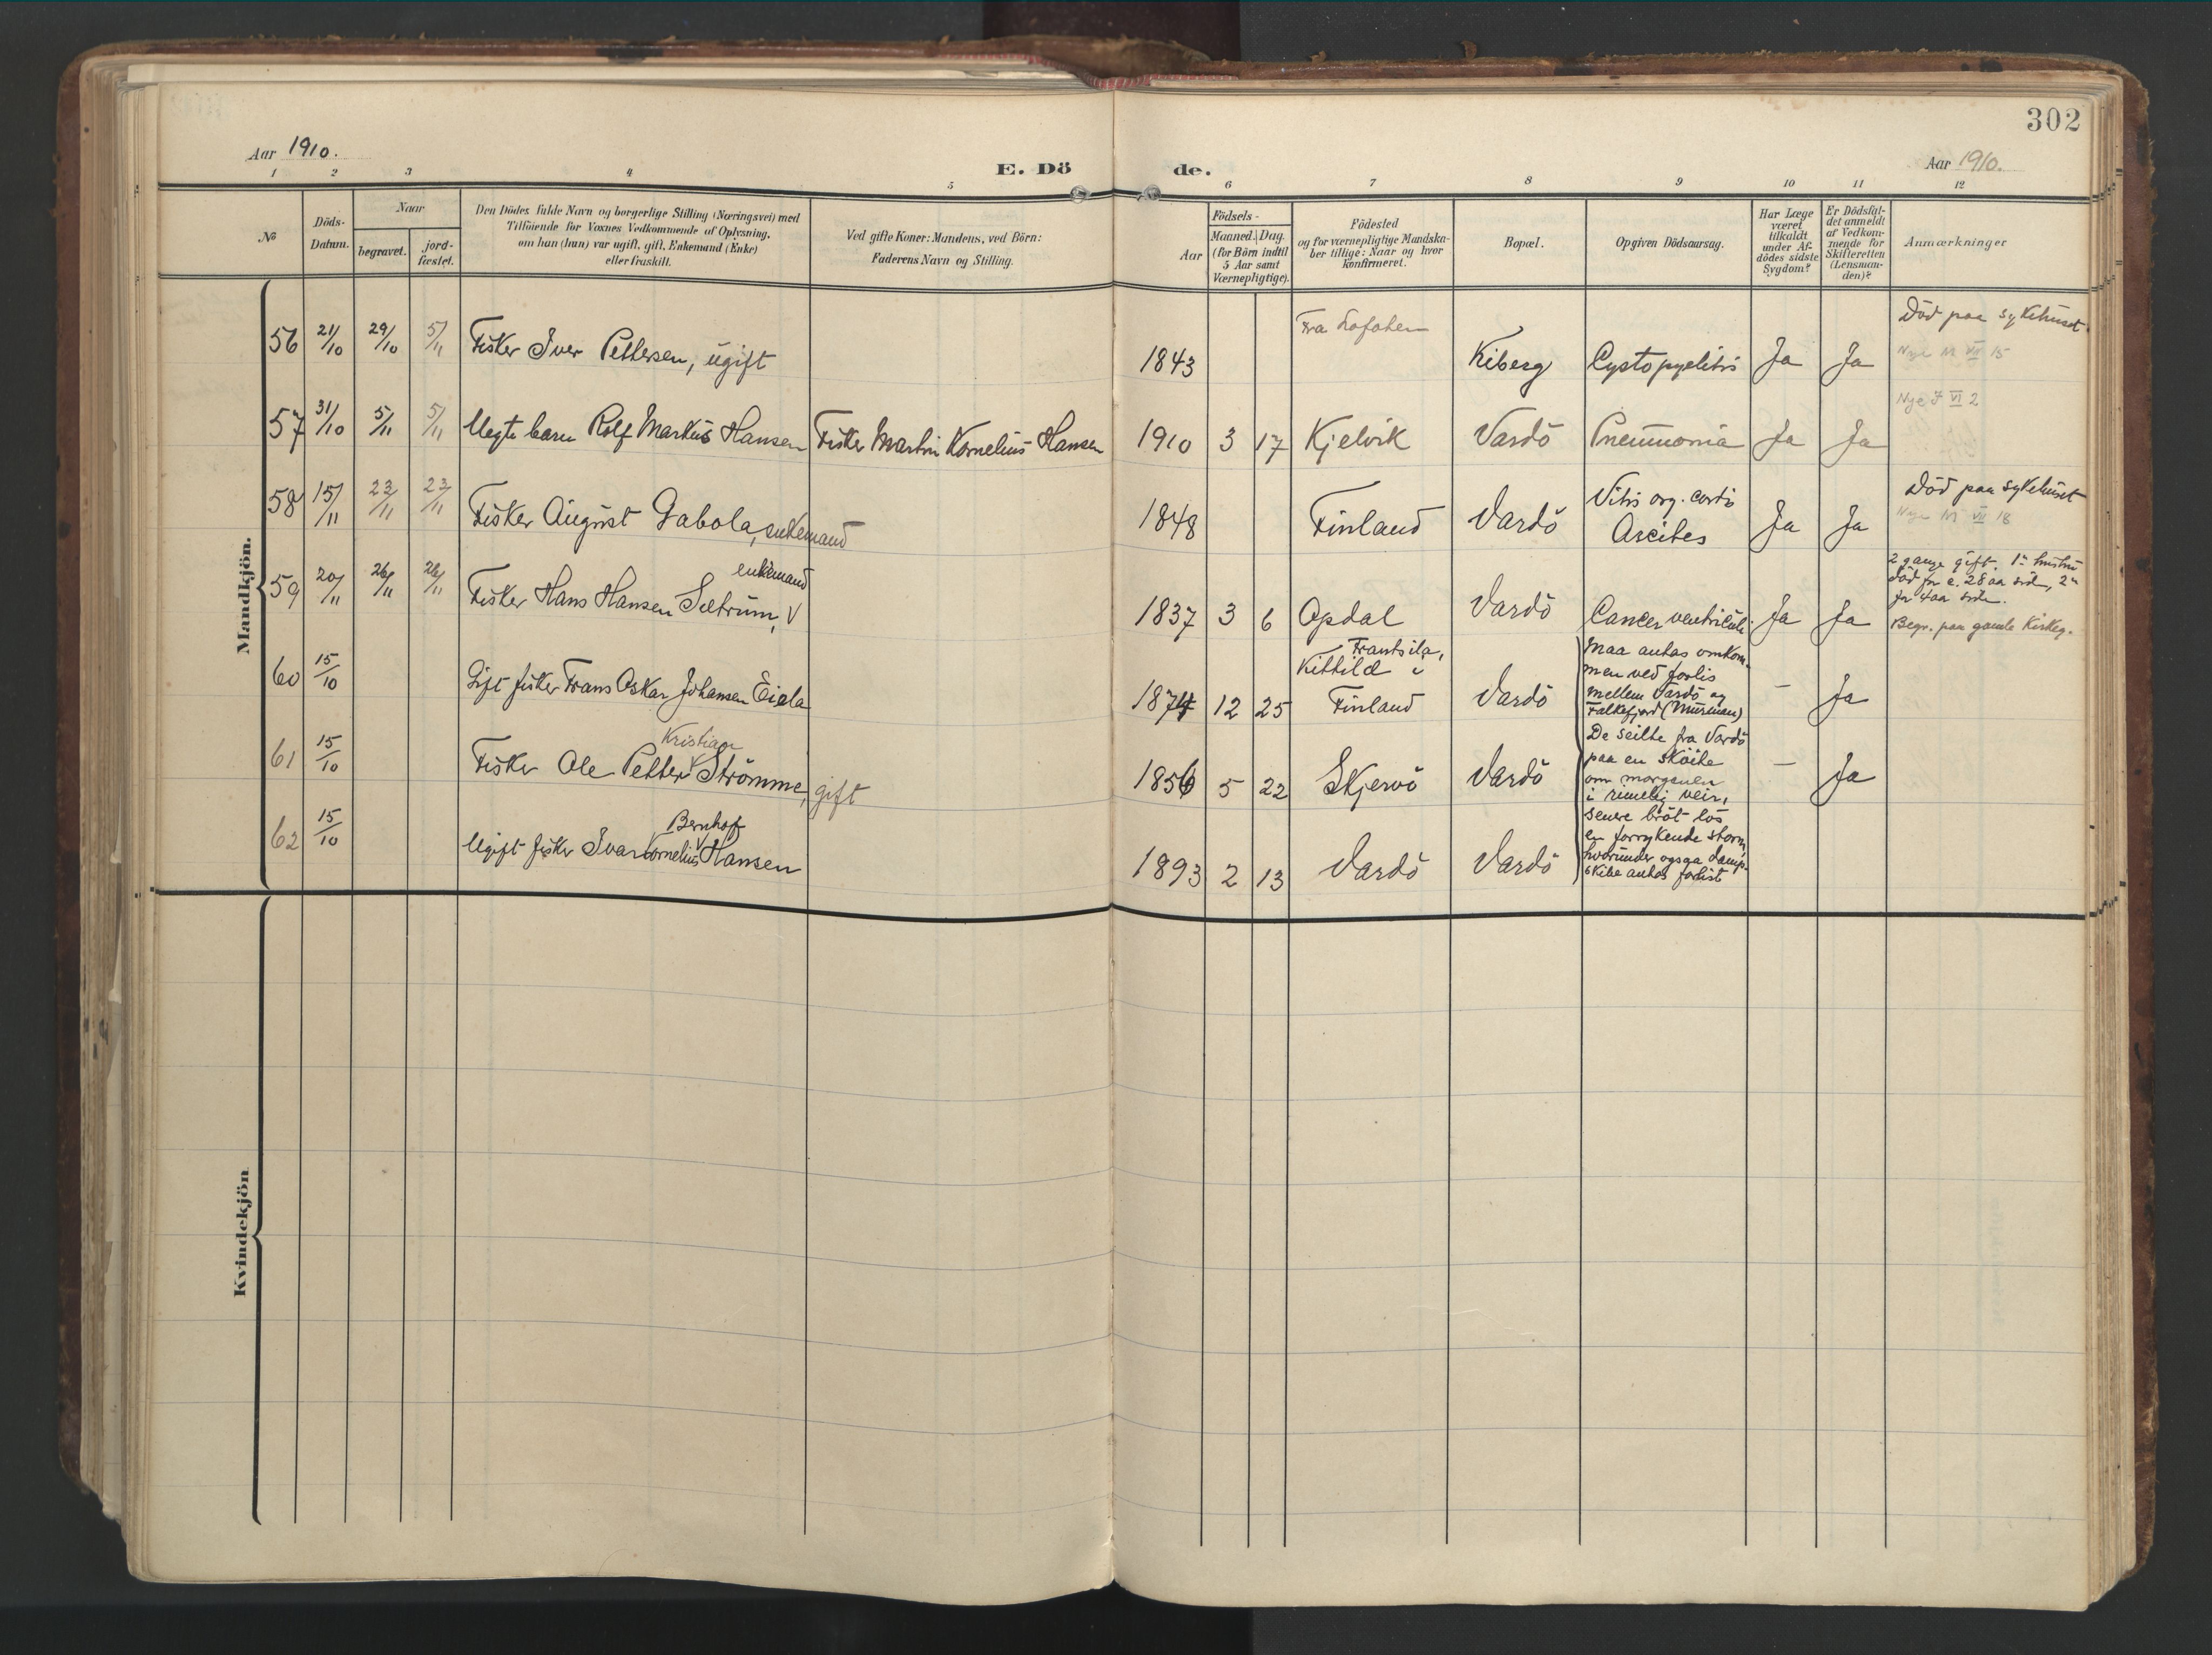 302
Aar 1910.
E. Dö
de.
Aar 1910.
1 2 3 4 5 6 7 8 9 10 11 12
No
Döds-
Datum.
Naar
begravet.
jord-
fæstet.
Den Dödes fulde Navn og borgerlige Stilling (Næringsvei) med
Tilföiende for Voxnes Vedkommende af Oplysning,
om han (hun) var ugift, gift, Enkemand (Enke)
eller fraskilt.
Ved gifte Koner: Mandens, ved Börn:
Faderens Navn og Stilling.
Födsels-
Aar
Maaned. Dag.
(for Börn indtil
5 Aar samt
Værnepligtige).
Födested
og for værnepligtige Mandska-
ber tillige: Naar og hvor
konfirmeret.
Bopæl.
Opgiven Dödsaarsag.
Har Læge
været
tilkaldt
under Af-
dödes sidste
Sygdom?
Er Dödsfal-
det anmeldt
af Vedkom-
mende for
Skifteretten
(Lensman-
den)?
Anmærkninger
Mandkjön.
56 21/10 29/10 5/11 Fisker Iver Pettersen, ugift 1843 Fra Lofoten Kiberg Cystopyelitis Ja Ja Död paa sykehuset.
Nye M VII 15
57 31/10 5/11 5/11 Uegte barn Rolf Markus Hansen Fisker Martin Kornelius Hansen 1910 3 17 Kjelvik Vardö Pneumonia Ja Ja
Nye F VI 2
58 15/11 23/11 23/11 Fisker August Gabola, enkemand 1848 Finland Vardö Vitis org. cordis
Ascites Ja Ja Död paa sykehuset
Nye M VII 18
59 20/11 26/11 26/11 Fisker Hans Hansen Seltrum, V
enkemand
1837 3 6 Opdal Vardö Cancer ventriculi Ja Ja
2 gange gift. 1ste hustru
död for c. 28 aa siden, 2n
for 4 aa siden.
Begr. paa gamle Kirkeg.
60 15/10 Gift fisker Frans Oskar Johansen Eiala 1874 12 25
Frantsila,
Kittilä i
Finland
Vardö
Maa antas omkom-
men ved forlis
mellem Vardö og
Falkefjord (Murman)
– Ja
61 15/10 Fisker Ole Petter V Strömme, gift
Kristian
1856 5 22 Skjervö Vardö
De seilte fra Vardö
paa en sköite
om morgenen
i rimelig veir,
– Ja
62 15/10 Ugift fisker Ivar Kornelius V Hansen
Bernhof
1893 2 13 Vardö Vardö
senere bröt lös
en forrykende storm,
hvorunder ogsaa damp-
skibe antas forlist
Kvindekjön